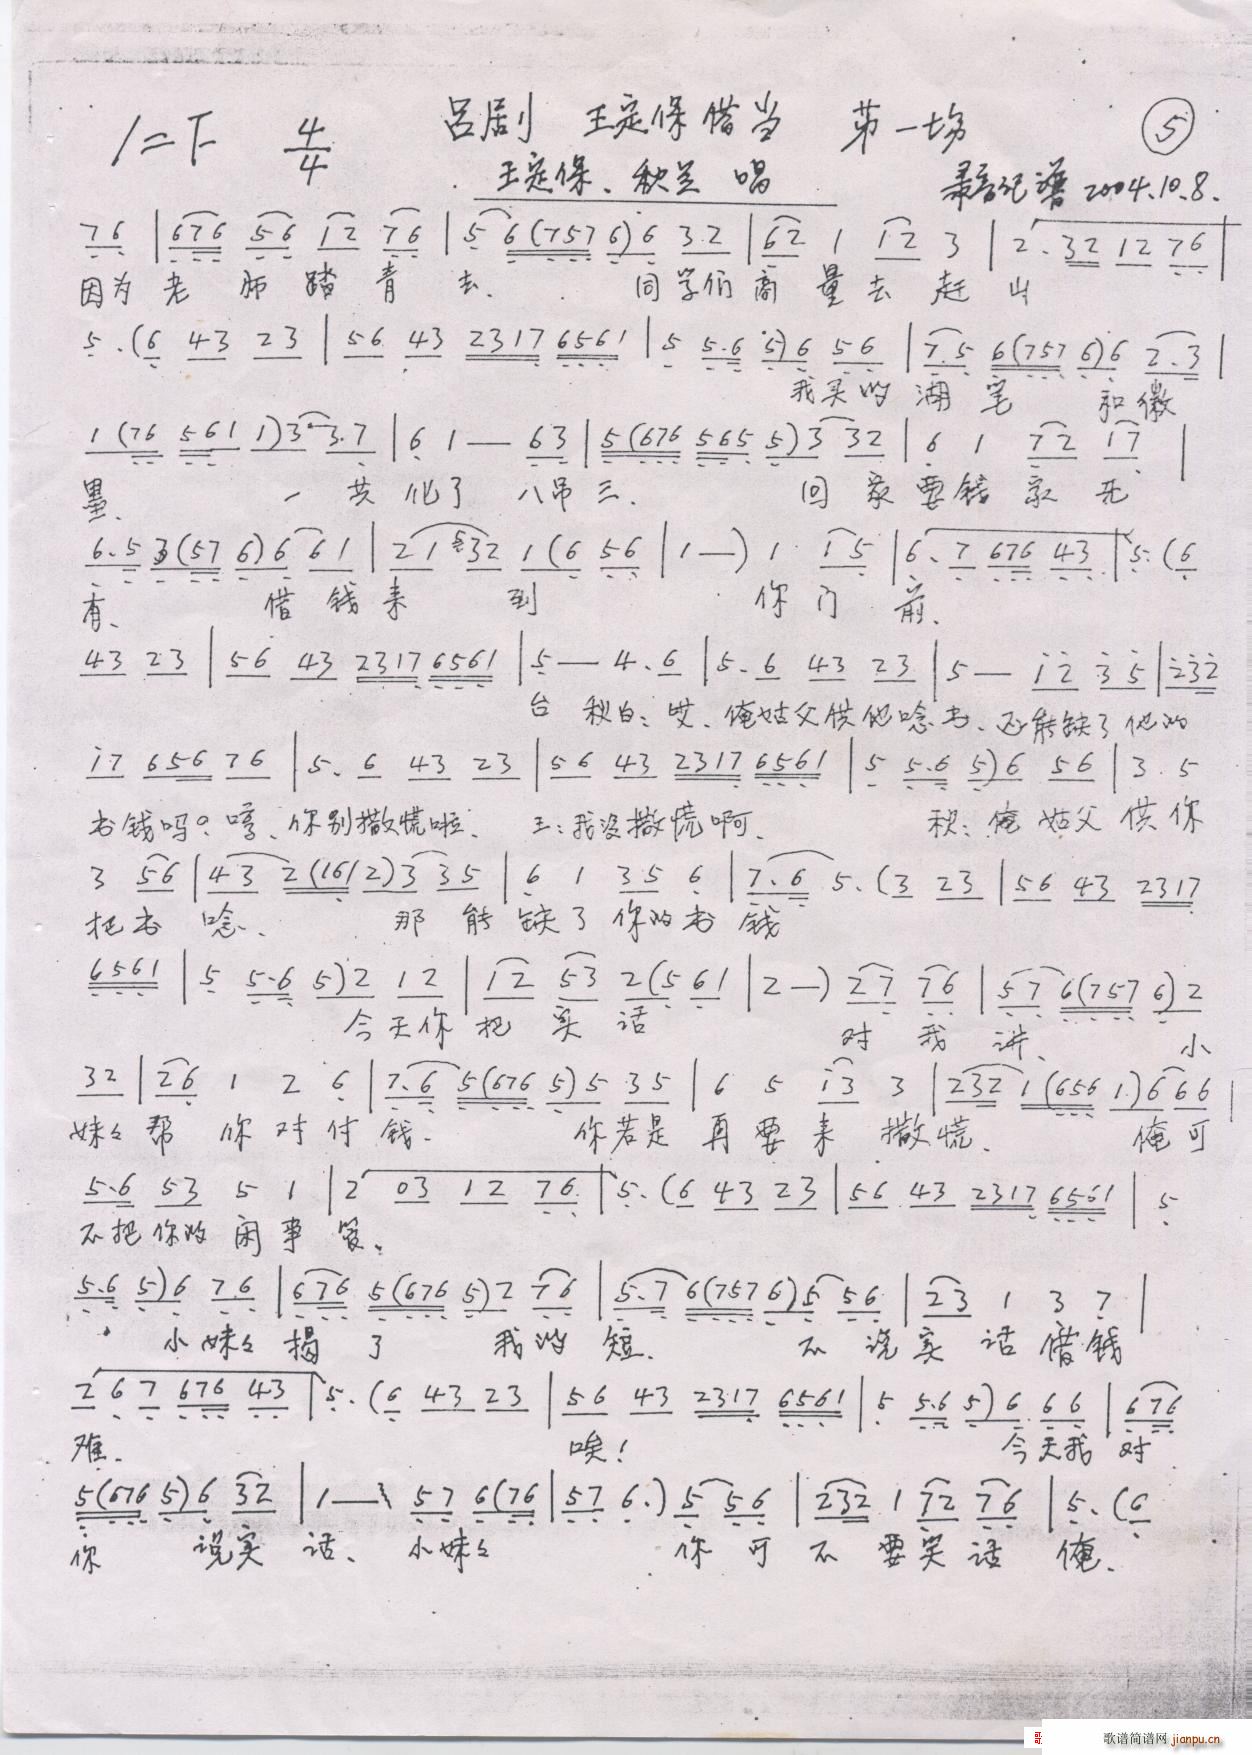 1=F 4/4 吕剧 王定保借当 第一场 ⑤
王定保、秋兰 唱 录音记谱 2004.10.8.
76 | 676 56 12 76 | 5 6(7576)6 32 | 62 1 12 3 | 2.32 12 76 |
因为老师踏青去. 同学们商量去赶山
5.(6 43 23 | 56 43 2317 6561 | 5 5.6 5)6 56 | 7.5 6(757 6)6 2.3 |
我买的湖笔 和徽
1(76 561 1)3 3.7 | 6 1 — 63 | 5(676 565 5)3 32 | 6 1 72 17 |
墨. 一共化了八吊三. 回家要钱家无
6.5 3(57 6)6 61 | 21 32 1(6 56 | 1 —) 1 15 | 6.7 676 43 | 5.(6
有. 借钱来到 你门前.
43 23 | 56 43 2317 6561 | 5 — 4.6 | 5.6 43 23 | 5 — 12 35 | 232
台 秋白:哎、俺姑父供他念书、还能缺了他的
17 656 76 | 5.6 43 23 | 56 43 2317 6561 | 5 5.6 5)6 56 | 3.5
书钱吗?哼、你别撒慌啦. 王:我没撒慌啊. 秋:俺姑父供你
3 56 | 43 2(161 2)3 35 | 6 1 35 6 | 7.6 5.(3 23 | 56 43 2317
把书念. 那能缺了你的书钱
6561 | 5 5.6 5)2 12 | 12 53 2(5 61 | 2 —) 27 76 | 57 6(757 6)2
今天你把实话 对我讲. 小
32 | 26 1 2 6 | 7.6 5(676 5)5 35 | 6 5 13 3 | 232 1(656 1.)6 66 |
妹々帮你对付钱. 你若是再要来撒慌. 俺可
5.6 53 5 1 | 2 03 12 76 | 5.(6 43 23 | 56 43 2317 6561 | 5
不把你的闲事管.
5.6 5)6 7.6 | 676 5(676 5)2 76 | 5.7 6(7576)5 56 | 23 1 3 7 |
小妹々揭了我的短. 不说实话借钱
2 6 7 676 43 | 5.(6 43 23 | 56 43 2317 6561 | 5 5.6 5)6 66 | 676
难. 唉! 今天我对
5(676 5)6 32 | 1 — 57 6(76 | 57 6.)5 56 | 232 1 72 76 | 5.(6
你 说实话、小妹々 你可不要笑话俺.
歌谱简谱网 jianpu.cn